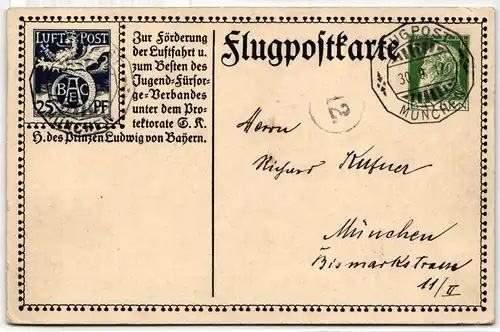 LUFT POST
BAEC
25 PF
MÜNCHEN
Zur Förderung
der Luftfahrt u.
zum Besten des
Jugend-Fürsor-
ge-Verbandes
unter dem Pro-
tektorate S. K.
H. des Prinzen Ludwig von Bayern.
Flugpostkarte
FLUGPOST
30
MÜNCHEN
12.
Herrn
Richard Kufner
München
Bismarkstrasse
11/II